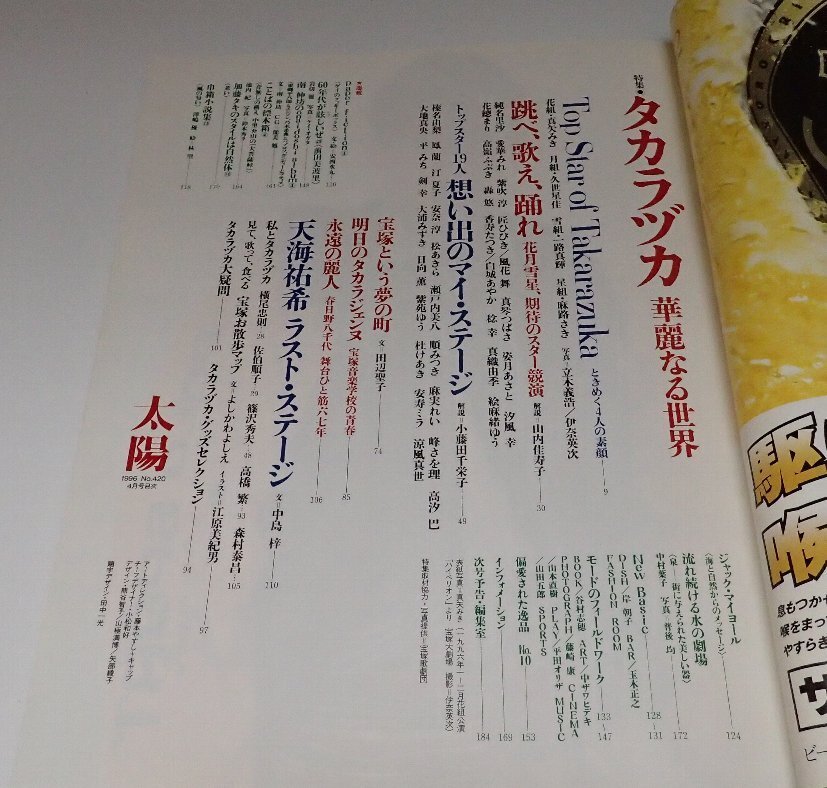 特集・タカラヅカ 華麗なる世界
Top Star of Takarazuka ときめく4人の素顔 9
花組・真矢みき 月組・久世星佳 雪組・一路真輝 星組・麻路さき 写真=立木義浩/伊奈英次
跳べ、歌え、踊れ 花月雪星、期待のスター競演 解説=山内佳寿子 30
純名里沙 愛華みれ 紫吹淳 匠ひびき/風花舞 真琴つばさ 姿月あさと 汐風幸
花總まり 高嶺ふぶき 轟悠 香寿たつき/白城あやか 稔幸 真織由季 絵麻緒ゆう
トップスター19人 想い出のマイ・ステージ 解説=小藤田千栄子 49
榛名由梨 鳳蘭 汀夏子 安奈淳 松あきら 瀬戸内美八 順みつき 麻実れい 峰さを理 高汐巴
大地真央 平みち 剣幸 大浦みずき 日向薫 紫苑ゆう 杜けあき 安寿ミラ 涼風真世
宝塚という夢の町 文=田辺聖子 74
明日のタカラジェンヌ 宝塚音楽学校の青春 85
永遠の麗人 春日野八千代 舞台ひと筋六七年 106
天海祐希 ラスト・ステージ 文=中島梓 110
私とタカラヅカ 横尾忠則 28 佐伯順子 29 篠沢秀夫 48 高橋繁 93 森村泰昌 105
見て、歌って、食べる 宝塚お散歩マップ 文=よしかわよしえ イラスト=江原美紀男 94
タカラヅカ大疑問 101 タカラヅカ・グッズセレクション 97
太陽
1996 No.420
4月号目次
★連載
paper fiction
130
60年代が欲しいせ
148
南伸坊のouтdooЯ・album
ことばの標本箱
163
加藤タキのスタイルは自然体
164
179
巾箱小説集
118
ジャック・マイヨール
〈海と自然からのメッセージ〉 124
流れ続ける水の劇場
〈泉—街に与えられた美しい器〉 172
中村葉子 写真 普後均
New Basic 128-131
DISH/岸朝子 BAR/玉木正之
FASHION ROOM
モードのフィールドワーク 133-147
BOOK/谷村志穂 ART/中ザワヒデキ
PHOTOGRAPH/藤崎康 CINEMA
/山本直樹 PLAY/平田オリザ MUSIC
/山田五郎 SPORTS
偏愛された逸品 No.10 153
インフォメーション 169
次号予告・編集室 184
表紙写真=真矢みき(一九九六年一〜二月花組公演
「ハイペリオン」より/宝塚大劇場 撮影=伊奈英次)
特集取材協力・写真提供=宝塚歌劇団
アートディレクション・藤本やすし+キャップ
チーフデザイナー・小松和好
デザイン・熊谷智子/山極満博/矢部綾子
題字デザイン・田中一光
駆
喉
息もつかせ
喉をまっ
やすらぎ
サ
ビー